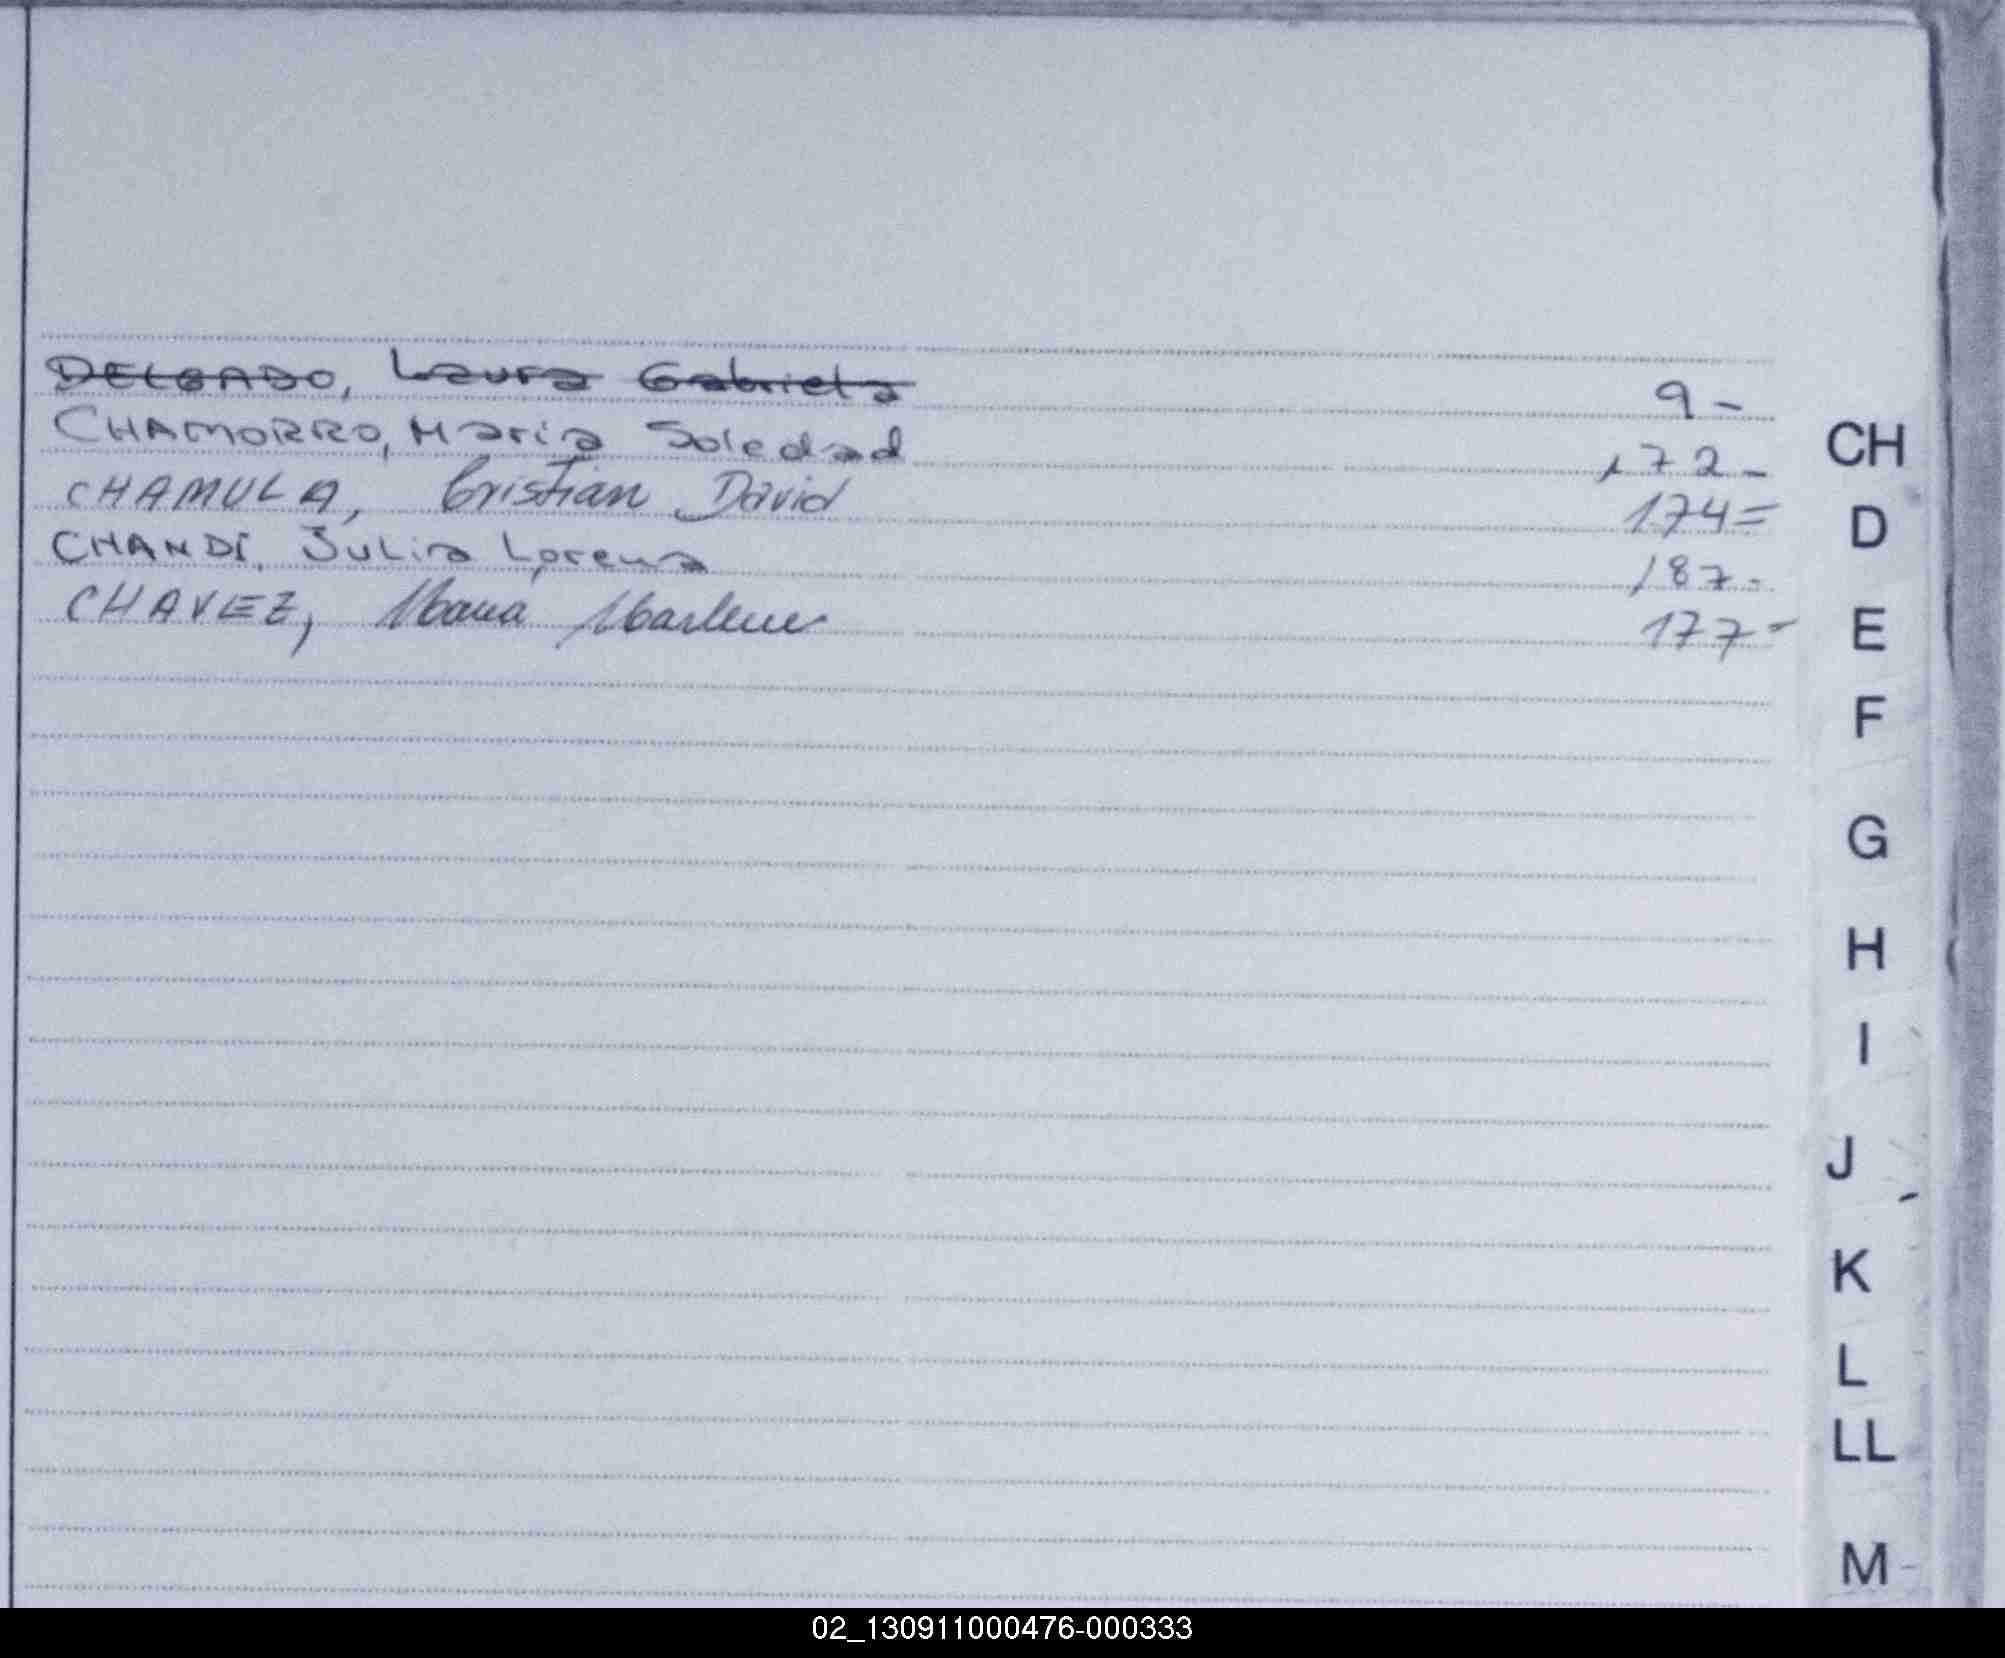 DELGADO, Laura Gabriela 9-
CHAMORRO, Maria Soledad 172-
CHAMULA, Cristian David 174=
CHANDÍ, Julia Lorena 187-
CHAVEZ, Maria Marlene 177-
CH
D
E
F
G
H
I
J
K
L
LL
M
02_130911000476-000333